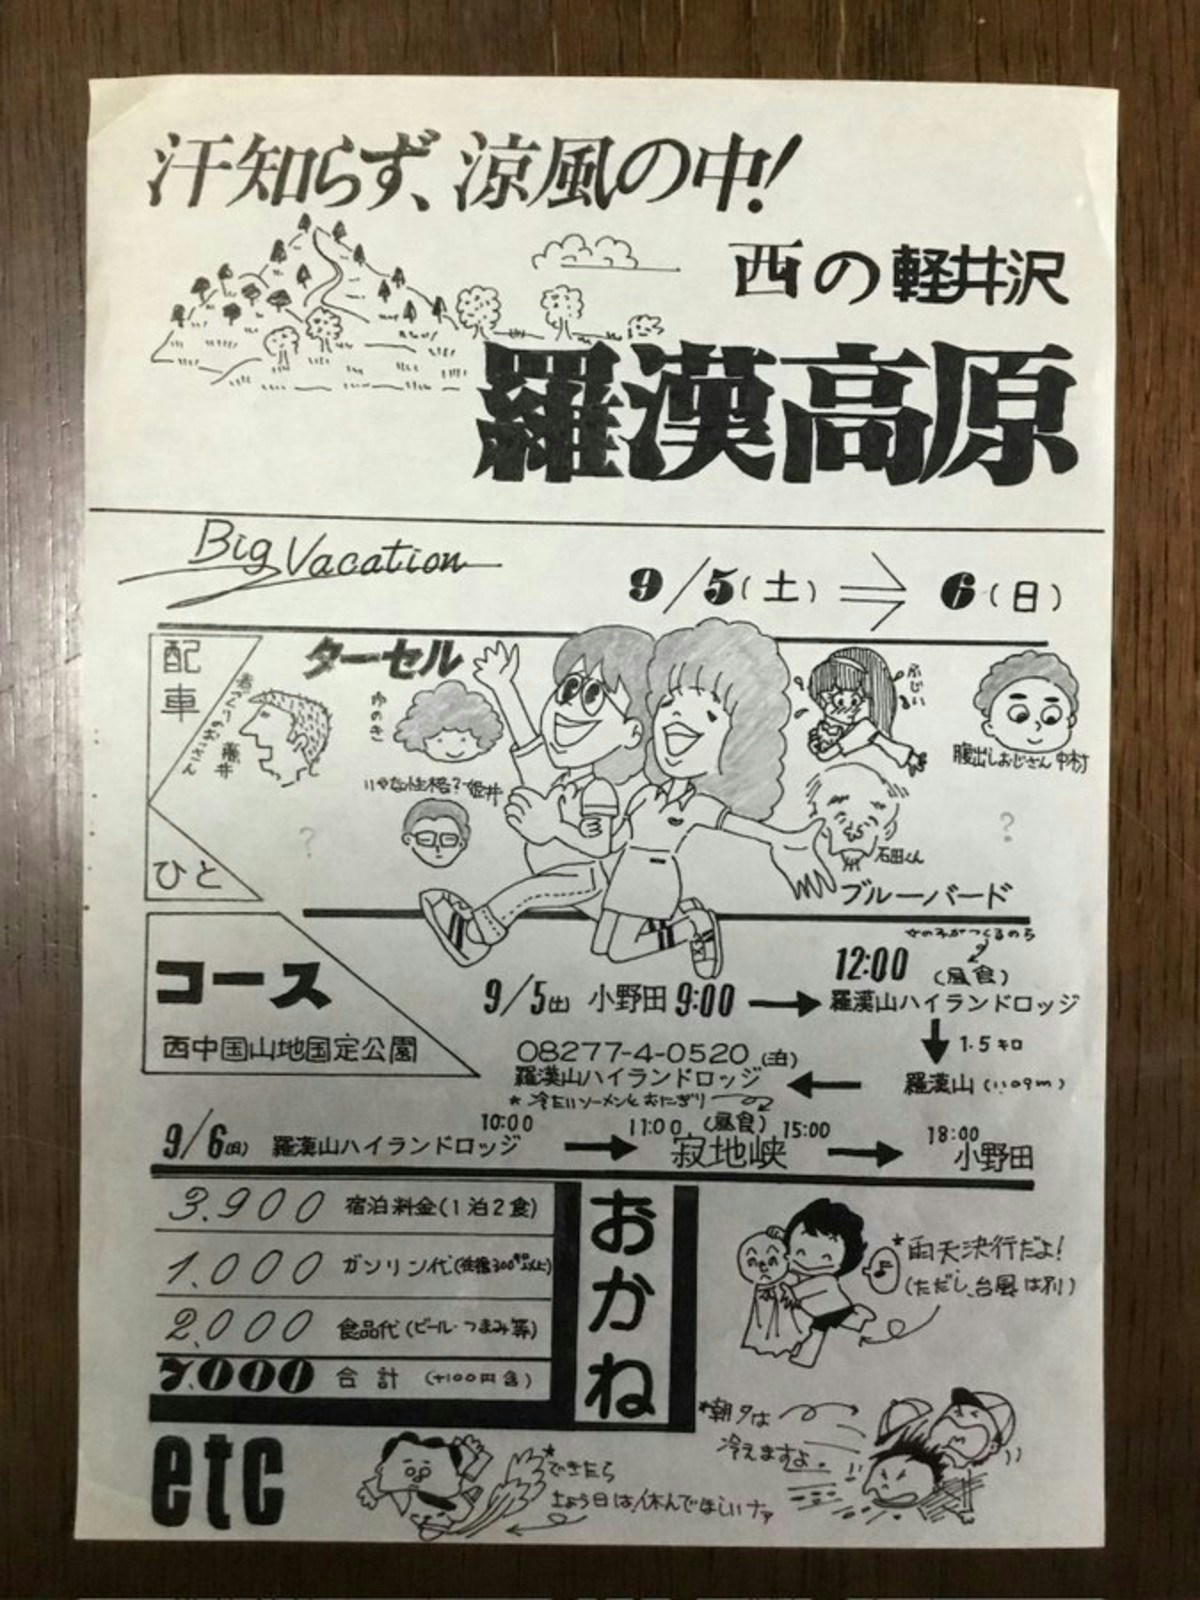 汗知らず、涼風の中!
西の軽井沢
羅漢高原
Big Vacation
9/5(土) ⇒ 6(日)
配車
ひと
ターセル
藤井
ゆのき
いやな性格?姫井
ふじい
腹出しおじさん 中村
石田くん
?
?
ブルーバード
コース
西中国山地国定公園
女の子がつくるのら
12:00 (昼食)
9/5(土) 小野田 9:00 → 羅漢山ハイランドロッジ
↓ 1.5キロ
08277-4-0520 (泊)
羅漢山ハイランドロッジ ← 羅漢山(1109m)
* 冷たいソーメンとおにぎり
10:00 11:00 (昼食) 15:00 18:00
9/6(日) 羅漢山ハイランドロッジ → 寂地峡 → 小野田
おかね
3.900 宿泊料金(1泊2食)
1.000 ガソリン代(往復300キロ以上)
2.000 食品代(ビール・つまみ等)
7.000 合計 (+100円含)
*雨天決行だよ!
(ただし、台風は別)
*朝夕は
冷えますよ。!!
etc
*できたら
土よう日は休んでほしいナァ